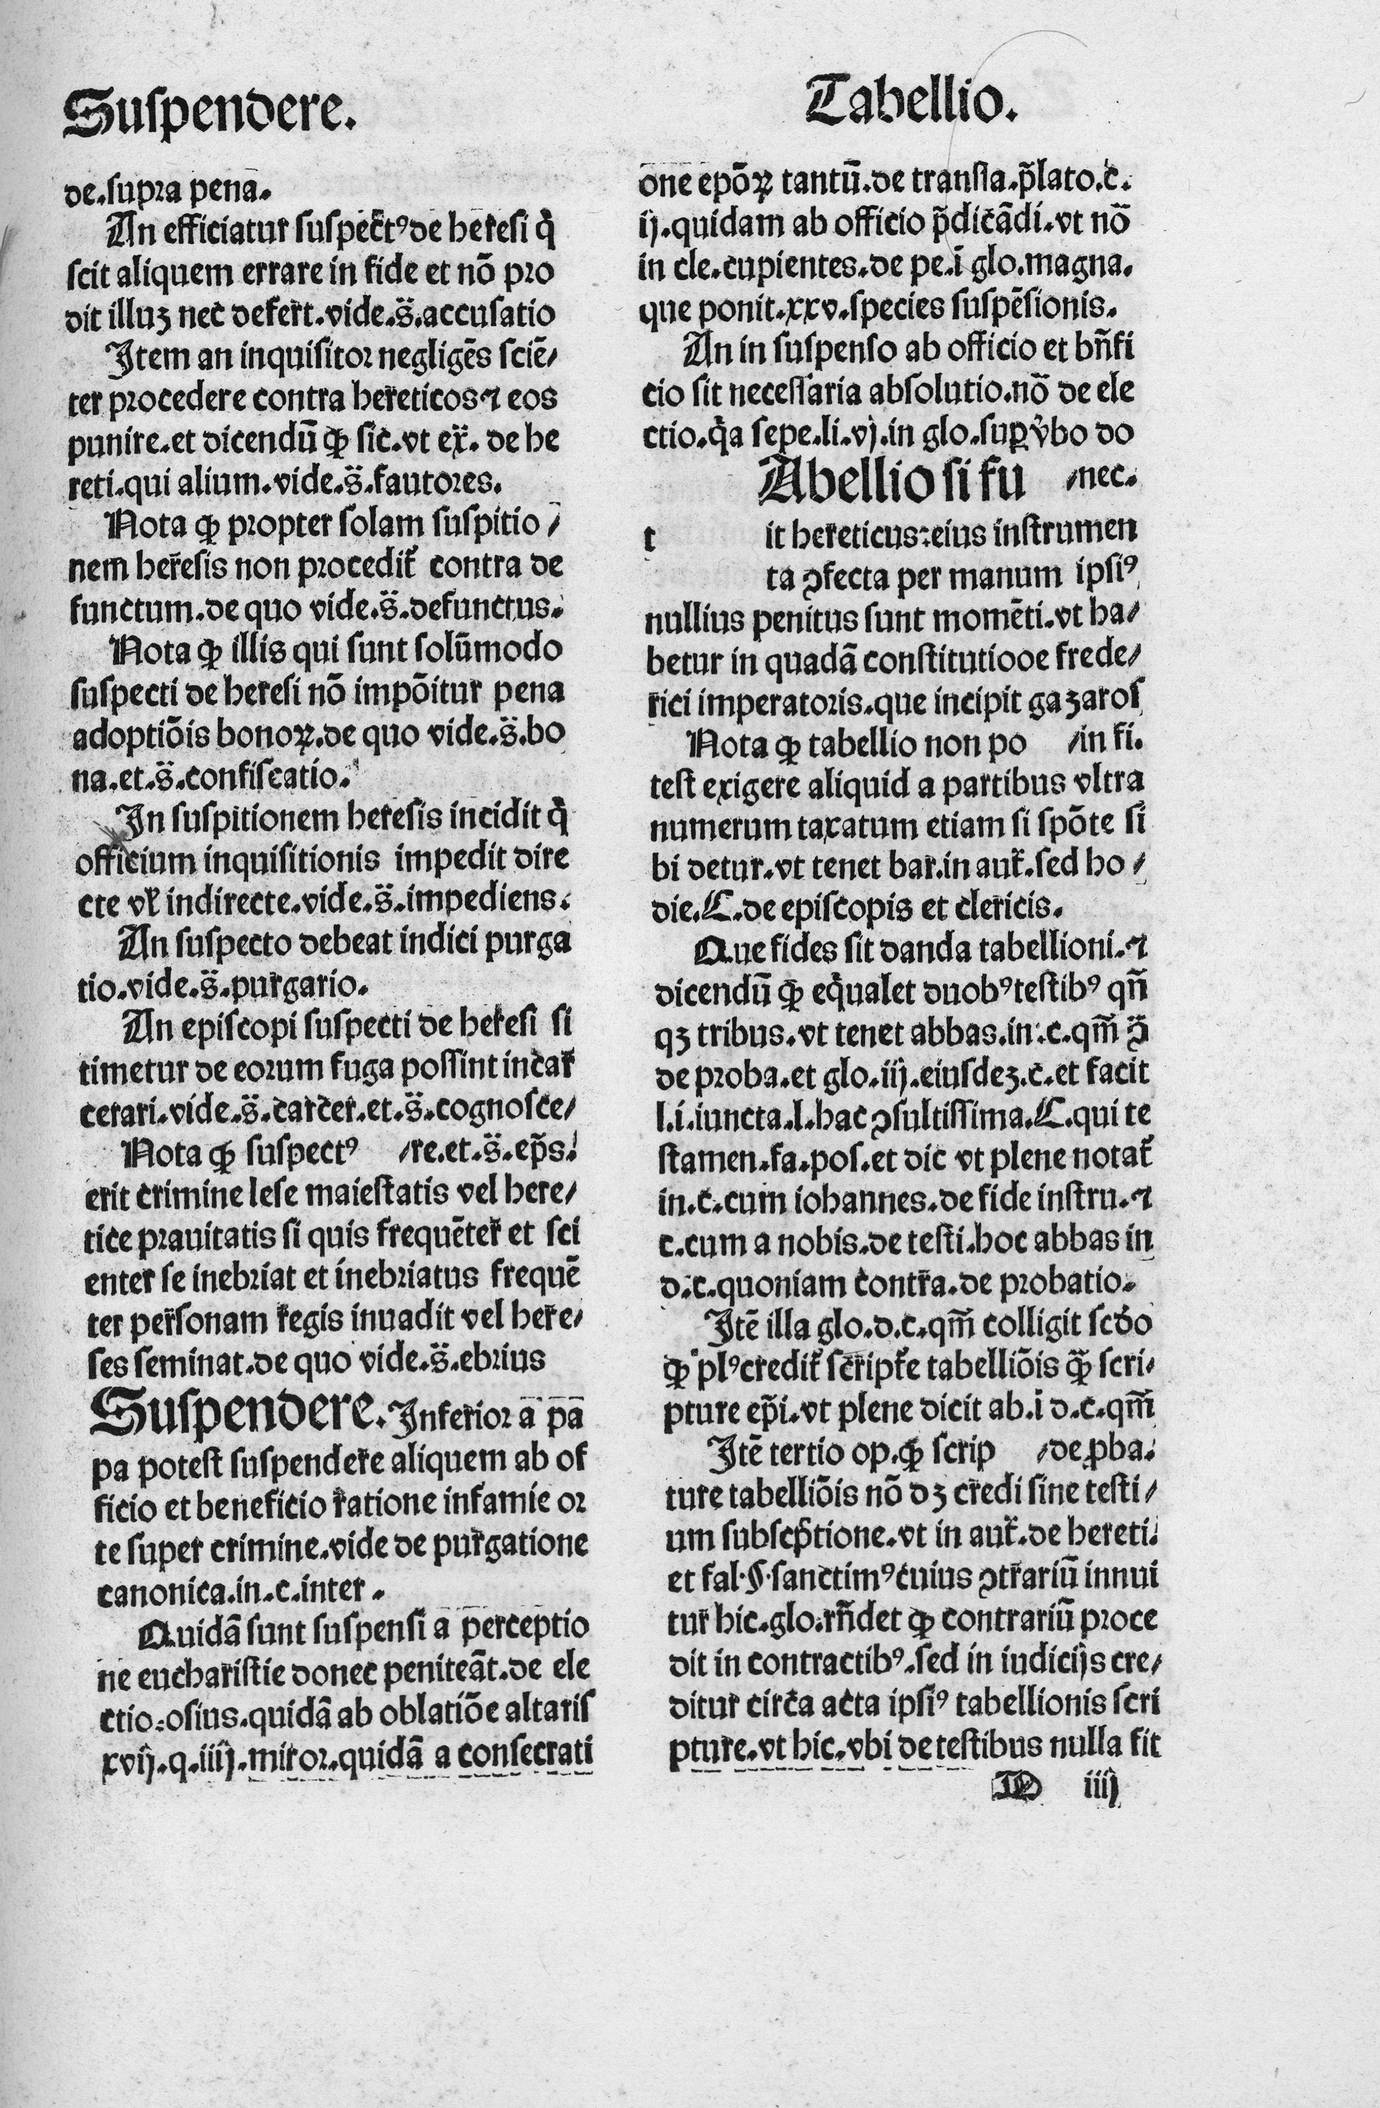 Suspendere.
de.supra pena.
An efficiatur suspectꝰ de heresi q̇
scit aliquem errare in fide et nō pro
dit illuꝫ nec defert.vide.s̈.accusatio
Item an inquisitor negligēs sciē/
ter procedere contra hereticos ⁊ eos
punire.et dicendū ꝙ sic.vt ex̎. de he
reti.qui alium.vide.s̈.fautores.
Nota ꝙ propter solam suspitio/
nem heresis non procedit᷑ contra de
functum.de quo vide.s̈.defunctus.
Nota ꝙ illis qui sunt solūmodo
suspecti de heresi nō impōitur pena
adoptiōis bonoꝝ.de quo vide.s̈.bo
na.et.s̈.confiscatio.
In suspitionem heresis incidit q̇
officium inquisitionis impedit dire
cte vl̓ indirecte.vide.s̈.impediens.
An suspecto debeat indici purga
tio.vide.s̈.purgario.
An episcopi suspecti de heresi si
timetur de eorum fuga possint incar
cerari.vide.s̈.carcer.et.s̈.cognosce/
Nota ꝙ suspectꝰ /re.et.s̈.ep̄s.
erit crimine lese maiestatis vel here/
tice prauitatis si quis frequēter et sci
enter se inebriat et inebriatus frequē
ter personam regis inuadit vel here/
ses seminat.de quo vide.s̈.ebrius
Suspendere. Inferior a pa
pa potest suspendere aliquem ab of
ficio et beneficio ratione infamie or
te super crimine.vide de purgatione
canonica.in.c.inter.
Quidā sunt suspensi a perceptio
ne eucharistie donec peniteāt.de ele
ctio.osius.quidā ab oblatiōe altaris
xvij.q.iiij.miror.quidā a consecrati
Tabellio.
one epōꝝ tantū.de transla.p̄lato.c.
ij.quidam ab officio p̄dicādi.vt nō
in cle.cupientes.de pe.ī glo.magna.
que ponit.xxv.species suspēsionis.
An in suspenso ab officio et bn̄fi
cio sit necessaria absolutio.nō de ele
ctio.q̇a sepe.li.vj.in glo.suꝑ v̓bo do
Abellio si fu /nec.
t it hereticus:eius instrumen
ta ꝯfecta per manum ipsiꝰ
nullius penitus sunt momēti.vt ha/
betur in quadā constitutiooe frede/
rici imperatoris.que incipit gazaros
Nota ꝙ tabellio non po /in fi.
test exigere aliquid a partibus vltra
numerum taxatum etiam si spōte si
bi detur.vt tenet bar.in aut᷑.sed ho/
die.C.de episcopis et clericis.
Que fides sit danda tabellioni.⁊
dicendū ꝙ eq̇ualet duobꝰ testibꝰ qn̄
qꝫ tribus.vt tenet abbas.in.c.qm̄ ꝯ̈
de proba.et glo.iij.eiusdeꝫ.c.et facit
l.i.iuncta.l.hac ꝯsultissima.C.qui te
stamen.fa.pos.et dic vt plene notat᷑
in.c.cum iohannes.de fide instru.⁊
c.cum a nobis.de testi.hoc abbas in
d.c.quoniam contra.de probatio.
Itē illa glo.d.c.qm̄ colligit scd̓o
ꝙ plꝰ credit᷑ script᷑e tabelliōis ꝙ̄ scri/
pture ep̄i.vt plene dicit ab.ī d.c.qm̄
Itē tertio op.ꝙ scrip /de ꝓba.
ture tabelliōis nō dꝫ credi sine testi/
um subscp̄tione.vt in aut᷑.de hereti.
et fal.§.sanctimꝰ cuius ꝯtrariū innui
tur hic.glo.rn̄det ꝙ contrariū proce
dit in contractibꝰ.sed in iudicijs cre/
ditur circa acta ipsiꝰ tabellionis scri
pture.vt hic.vbi de testibus nulla fit
iiij